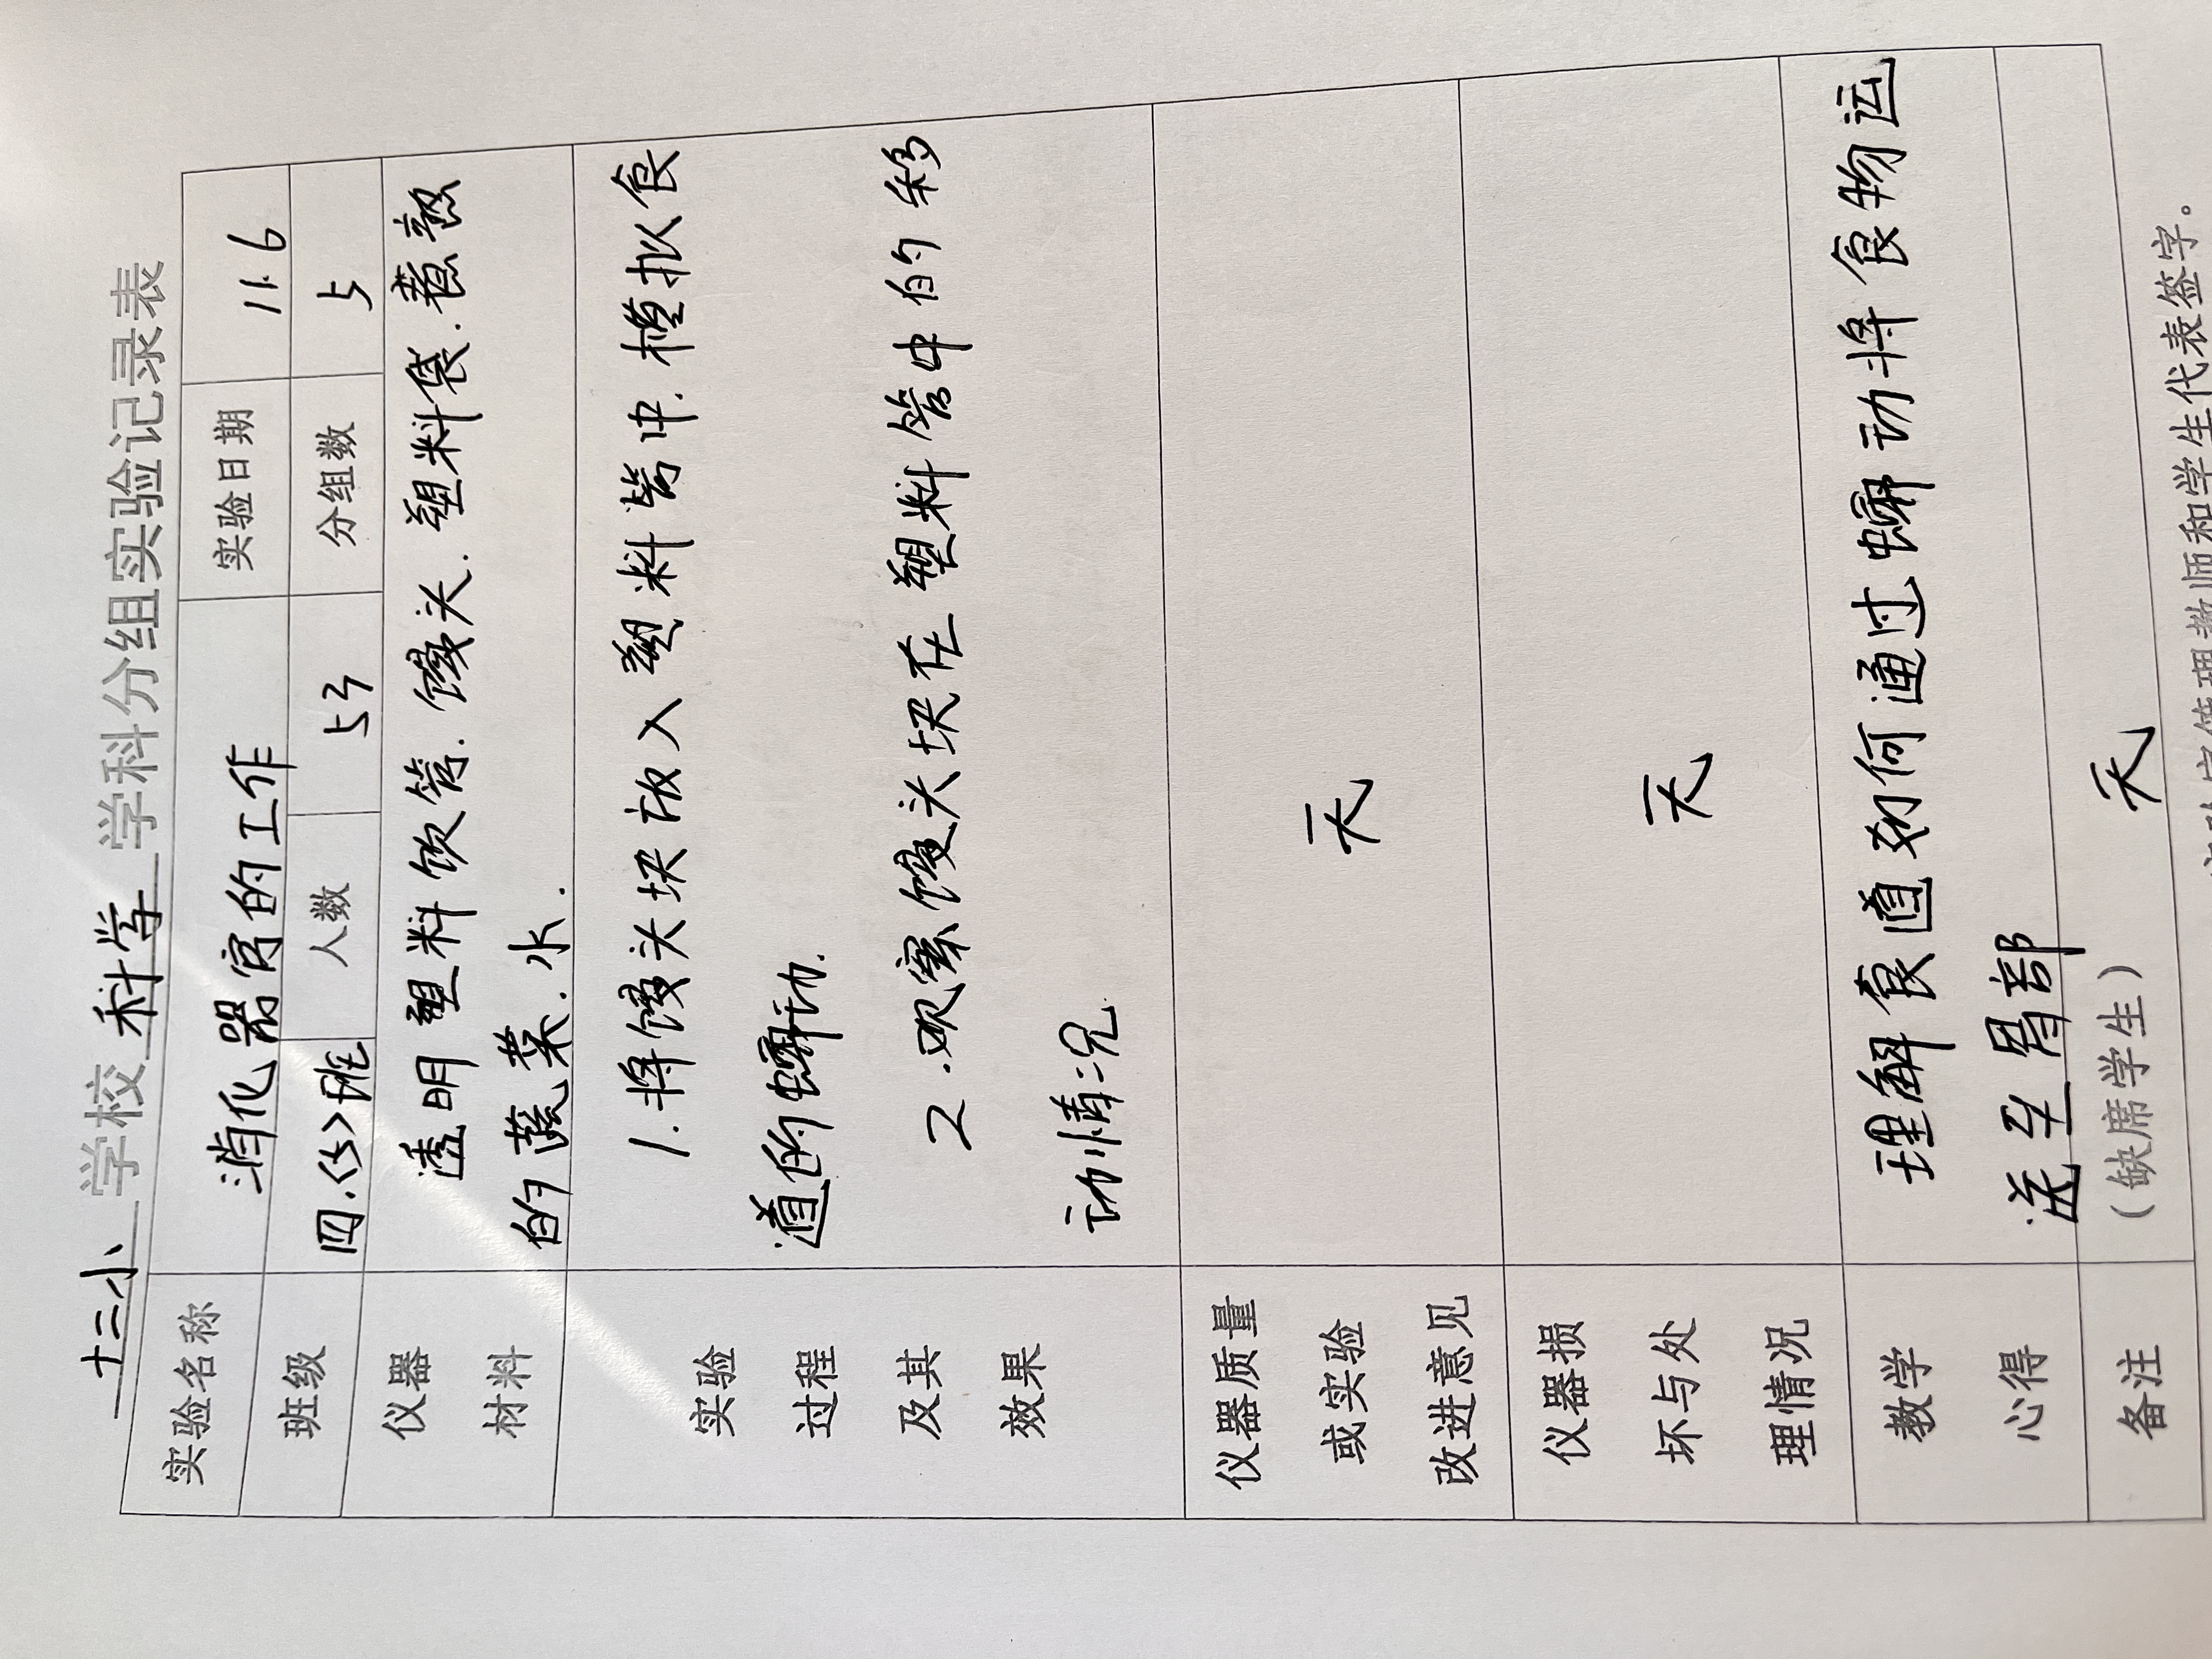 十三小 学校 科学 学科分组实验记录表
实验名称 消化器官的工作 实验日期 11.6
班级 四.(5)班 人数 53 分组数 5
仪器 透明塑料饮管.馒头.塑料袋.煮熟
材料 的蔬菜.水.
1.将馒头块放入塑料管中.模拟食
实验 道的蠕动.
过程
及其 2.观察馒头块在塑料管中的移
效果 动情况
仪器质量
或实验 无
改进意见
仪器损
坏与处 无
理情况
教学 理解食道如何通过蠕动将食物运
心得 送至胃部
备注 (缺席学生) 无
管理教师和学生代表签字。